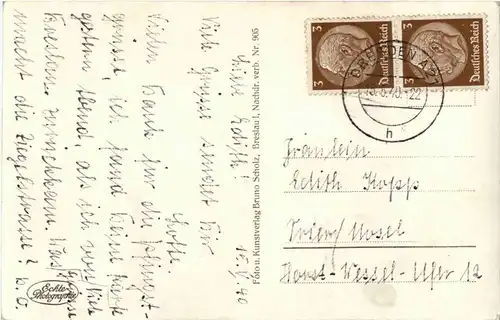 Liebe Edith!
Viele Grüsse sendet Dir
Lotte
15.V.40
Vielen Dank für die Pfingst-
grüsse, ich fand Deine Karte
gestern Abend, als ich vom
zurückkam. Was
macht die Ziegelstrasse? D.O.
Echte
Photographie
Foto u. Kunstverlag Bruno Scholz, Breslau I, Nachdr. verb. Nr. 905
3
Deutsches Reich
3
Deutsches Reich
DRESDEN A
h
Fräulein
Edith Kopp
Trier/Mosel
Horst-Wessel-Ufer 12